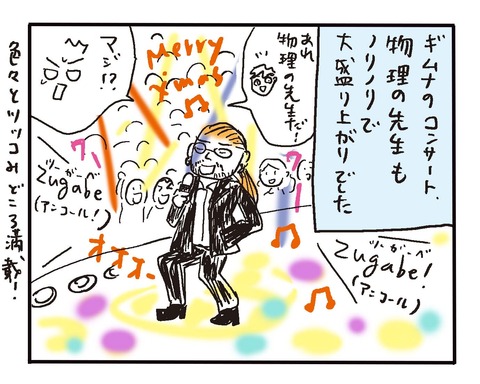 ギムナのコンサート、
物理の先生も
ノリノリで
大盛り上がりでした
あれ
物理の先生だ!
Merry
Xmas
マジ!?
ワー
Zugabe
(アンコール!)
ワー
オオオー
ツーガーベ
Zugabe!
(アンコール)
色々とツッコみどころ満載!